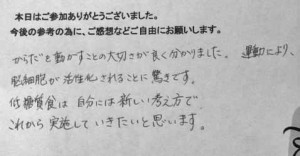 本日はご参加ありがとうございました。
今後の参考の為に、ご感想などご自由にお願いします。
からだを動かすことの大切さが良く分かりました。運動により、
脳細胞が活性化されることに驚きです。
低糖質食は自分には新しい考え方で
これから実施していきたいと思います。